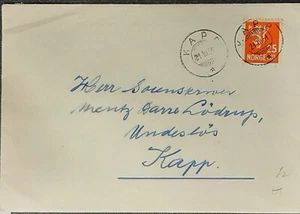 KAPP
KAPP
25
NORGE
Herr Sorenskriver
Mentz Darre Lödrup,
Kapp.
12